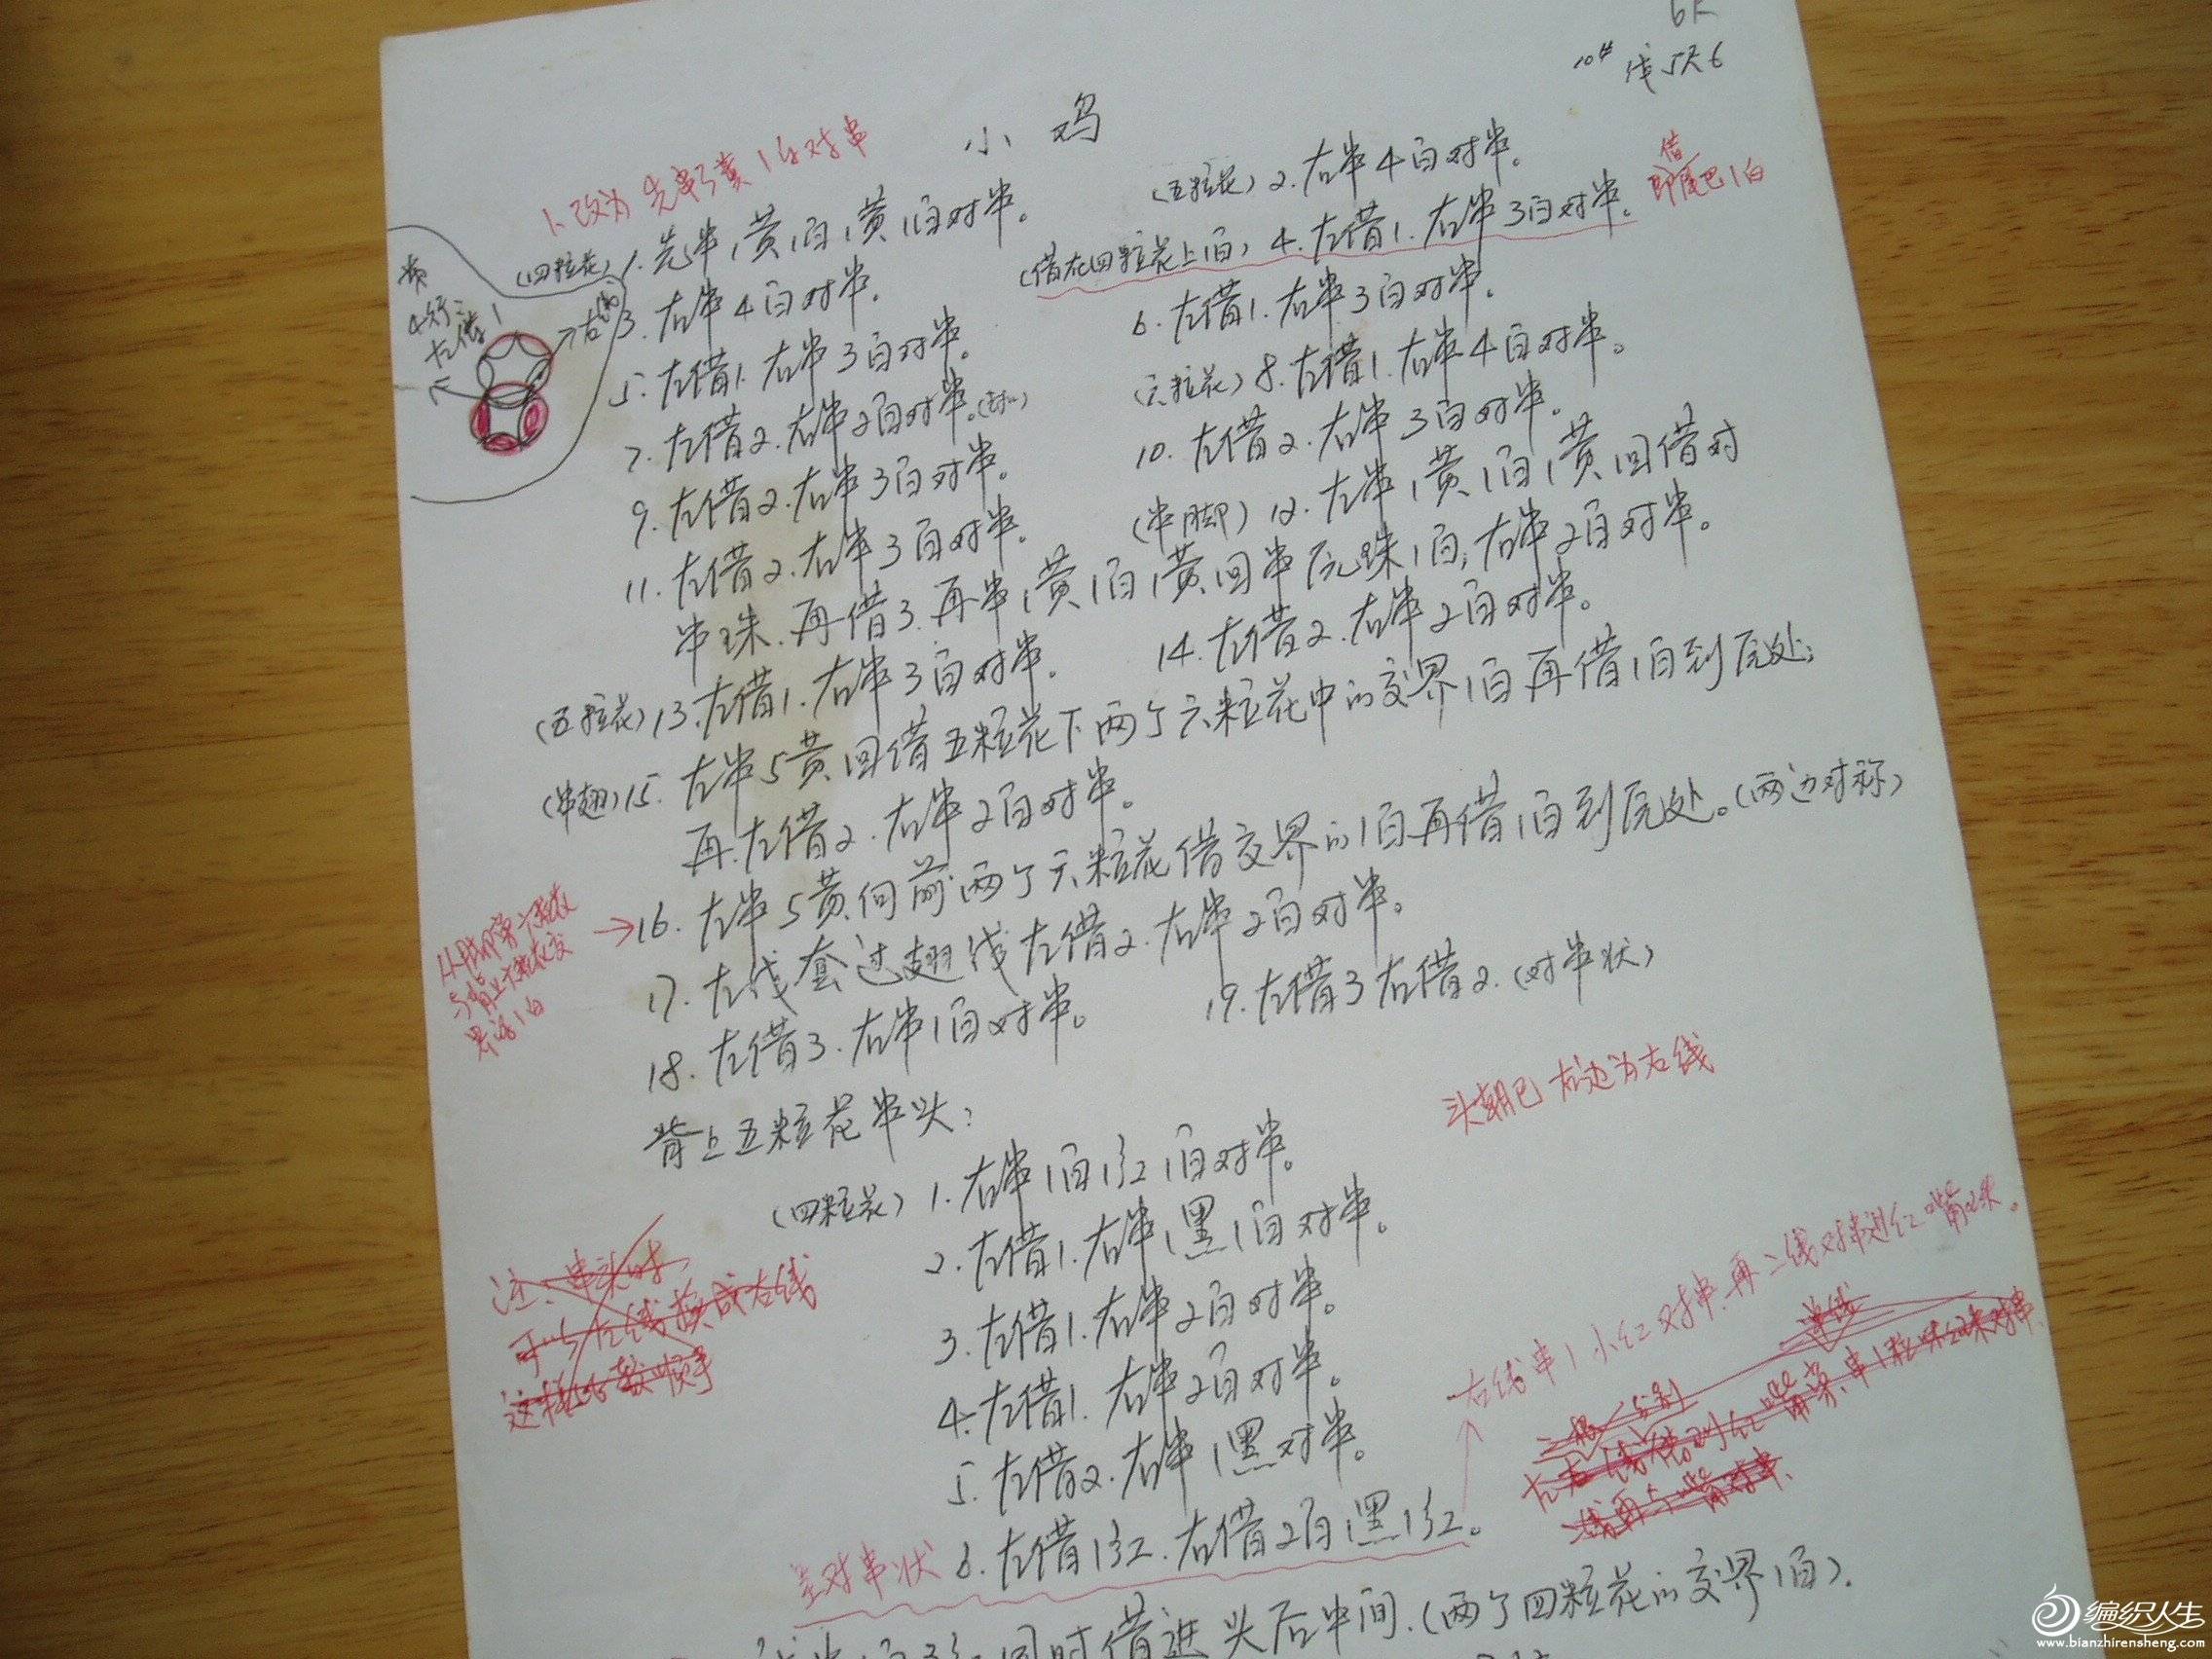 10# 线5尺6
小鸡
1.改为 先串1黄1白对串
(四粒花) 1.先串1黄1白1黄1白对串。
(五粒花) 2.右串4白对串。
借
即尾巴1白
3.右串4白对串。
(借在四粒花上1白) 4.左借1.右串3白对串。
5.左借1.右串3白对串。
6.左借1.右串3白对串。
7.左借2.右串2白对串。
(六粒花) 8.左借1.右串4白对串。
9.左借2.右串3白对串。
10.左借2.右串3白对串。
11.左借2.右串3白对串。
(串脚) 12.左串1黄1白1黄回借对
串珠.再借3.再串1黄1白1黄回串底珠1白;右串2白对串。
(五粒花) 13.左借1.右串3白对串。
14.左借2.右串2白对串。
(串翅) 15.左串5黄回借五粒花下两个六粒花中的交界1白再借1白到底处;
再左借2.右串2白对串。
→16.左串5黄向前两个六粒花借交界的1白再借1白到底处。(两边对称)
17.左线套过翅线左借2.右串2白对串。
18.左借3.右串1白对串。
19.左借3右借2.(对串状)
背上五粒花串头:
头朝已 右边为右线
(四粒花) 1.右串1白1红1白对串。
2.左借1.右串1黑1白对串。
3.左借1.右串2白对串。
4.左借1.右串2白对串。
5.左借2.右串1黑对串。
呈对串状 6.左借1红.右借2白1黑1红。
右线串1小红对串.再二线对串进红嘴珠。
注:串头时
可以左线换成右线
这样比较顺手
同时借进头后中间.(两个四粒花的交界1白).
编织人生
www.bianzhirensheng.com